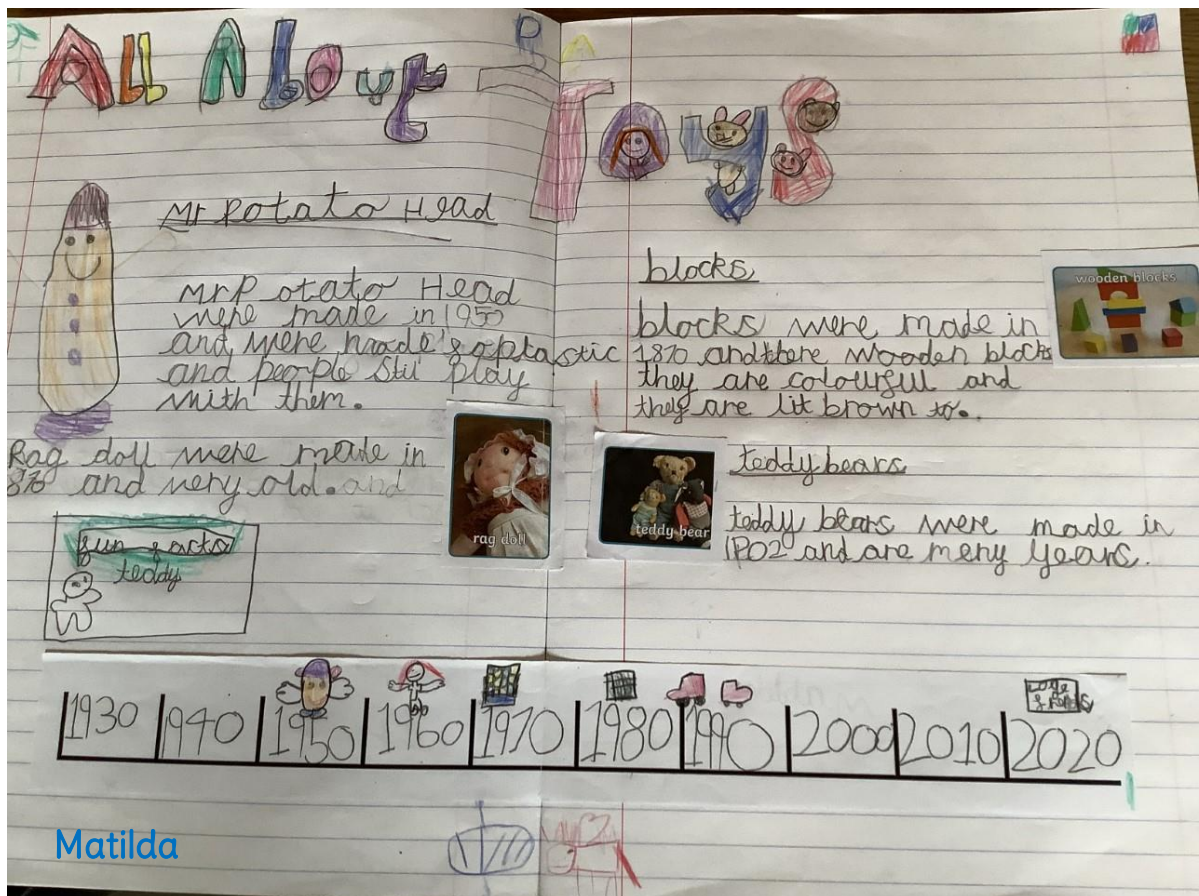 All About
Toys
Mr Potato Head
MrPotato Head
were made in 1950
and were made
and people stil play
with them.
Rag doll were made in
870 and very old. and
rag doll
fun facts
teddy
blocks
blocks were made in
1870 and there wooden blocks
they are colourful and
they are lit brown to..
wooden blocks
teddy bears
teddy bears were made in
1902 and are meny years.
teddy bear
1930 1940 1950 1960 1970 1980 1990 2000 2010 2020
Matilda